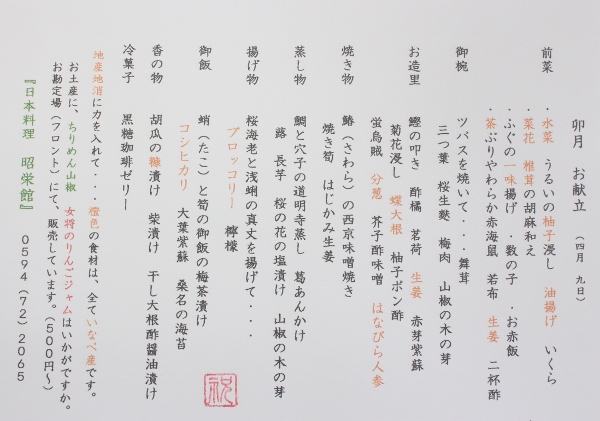 卯月 お献立 (四月 九日)
前菜 ・水菜 うるいの柚子浸し 油揚げ いくら
・菜花 椎茸の胡麻和え
・ふぐの一味揚げ ・数の子 ・お赤飯
・茶ぶりやわらか赤海鼠 若布 生姜 二杯酢
御椀 ツバスを焼いて・・・舞茸
三つ葉 桜生麩 梅肉 山椒の木の芽
お造里 鰹の叩き 酢橘 茗荷 生姜 赤芽紫蘇
菊花浸し 蝶大根 柚子ポン酢
蛍烏賊 分葱 芥子酢味噌 はなびら人参
焼き物 鰆(さわら)の西京味噌焼き
焼き筍 はじかみ生姜
蒸し物 鯛と穴子の道明寺蒸し 葛あんかけ
蕗 長芋 桜の花の塩漬け 山椒の木の芽
揚げ物 桜海老と浅蜊の真丈を揚げて・・・
ブロッコリー 檸檬
御飯 蛸(たこ)と筍の御飯の梅茶漬け
コシヒカリ 大葉紫蘇 桑名の海苔
香の物 胡瓜の糠漬け 柴漬け 干し大根酢醤油漬け
冷菓子 黒糖珈琲ゼリー
祝
地産地消に力を入れて・・・橙色の食材は、全ていなべ産です。
お土産に、ちりめん山椒 女将のりんごジャムはいかがですか。
お勘定場(フロント)にて、販売しています。(500円~)
『日本料理 昭栄館』 0594(72)2065